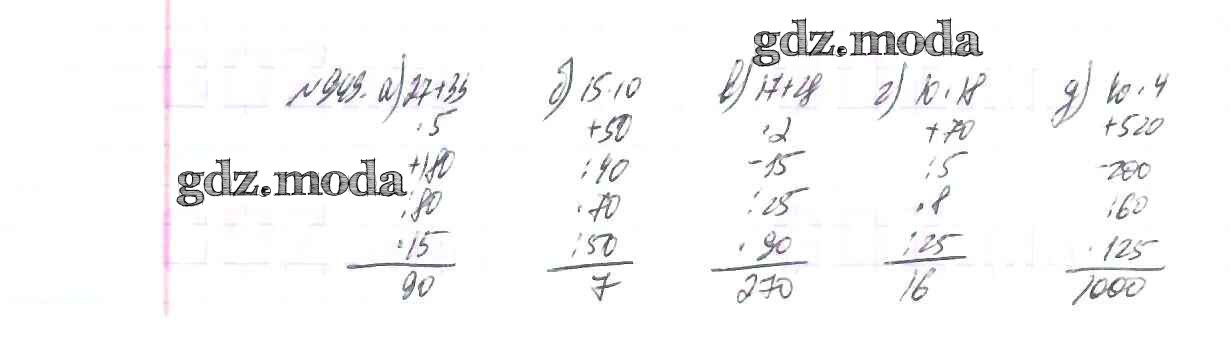 gdz.moda
№949. а) 27+33 б) 15·10 в) 17+28 г) 10·18 д) 40·4
·5 +50 ·2 +70 +520
+180 :40 -15 :5 -200
gdz.moda
:80 ·70 :25 ·8 :60
·15 :50 ·90 :25 ·125
90 7 270 16 1000